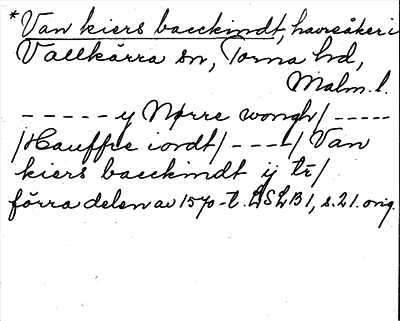 *Van kiers baeckindt, havreåker i
Vallkärra sn, Torna hd,
Malm. l.
- - - - - y Nørre wongh/ - - - - -
/Hauffre iordt/ - - - -/ Van
kiers baeckindt ij tr/
förra delen av 1570-t. LSLB1, s. 21. orig.